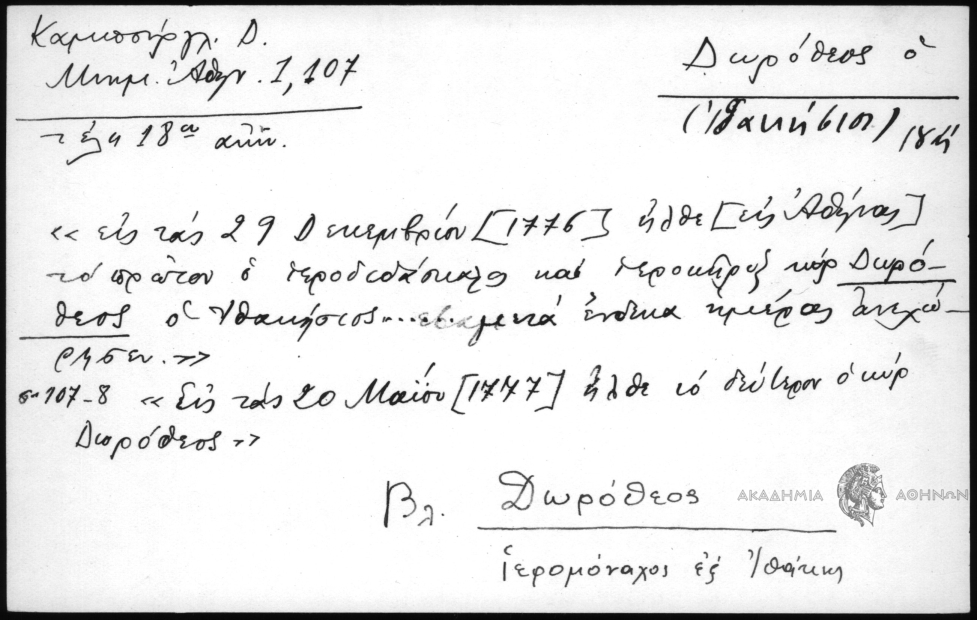 Καμπούρογλ. Δ.
Μνημ. Ἀθην. 1, 107
τέλη 18ου αἰών.
Δωρόθεος ὁ
(Ἰθακήσιος) 18η
« εἰς τάς 29 Δεκεμβρίου [1776] ἦλθε [εἰς Ἀθήνας]
τό πρῶτον ὁ ἱεροδιδάσκαλος καί ἱεροκῆρυξ κύρ Δωρό-
θεος ὁ Ἰθακήσιος... μετά ἕνδεκα ἡμέρας ἀνεχώ-
ρησεν. »
σ. 107-8 « Εἰς τάς 20 Μαΐου [1777] ἦλθε τό δεύτερον ὁ κύρ
Δωρόθεος »
Βλ. Δωρόθεος
ἱερομόναχος ἐξ Ἰθάκης
ΑΚΑΔΗΜΙΑ ΑΘΗΝΩΝ